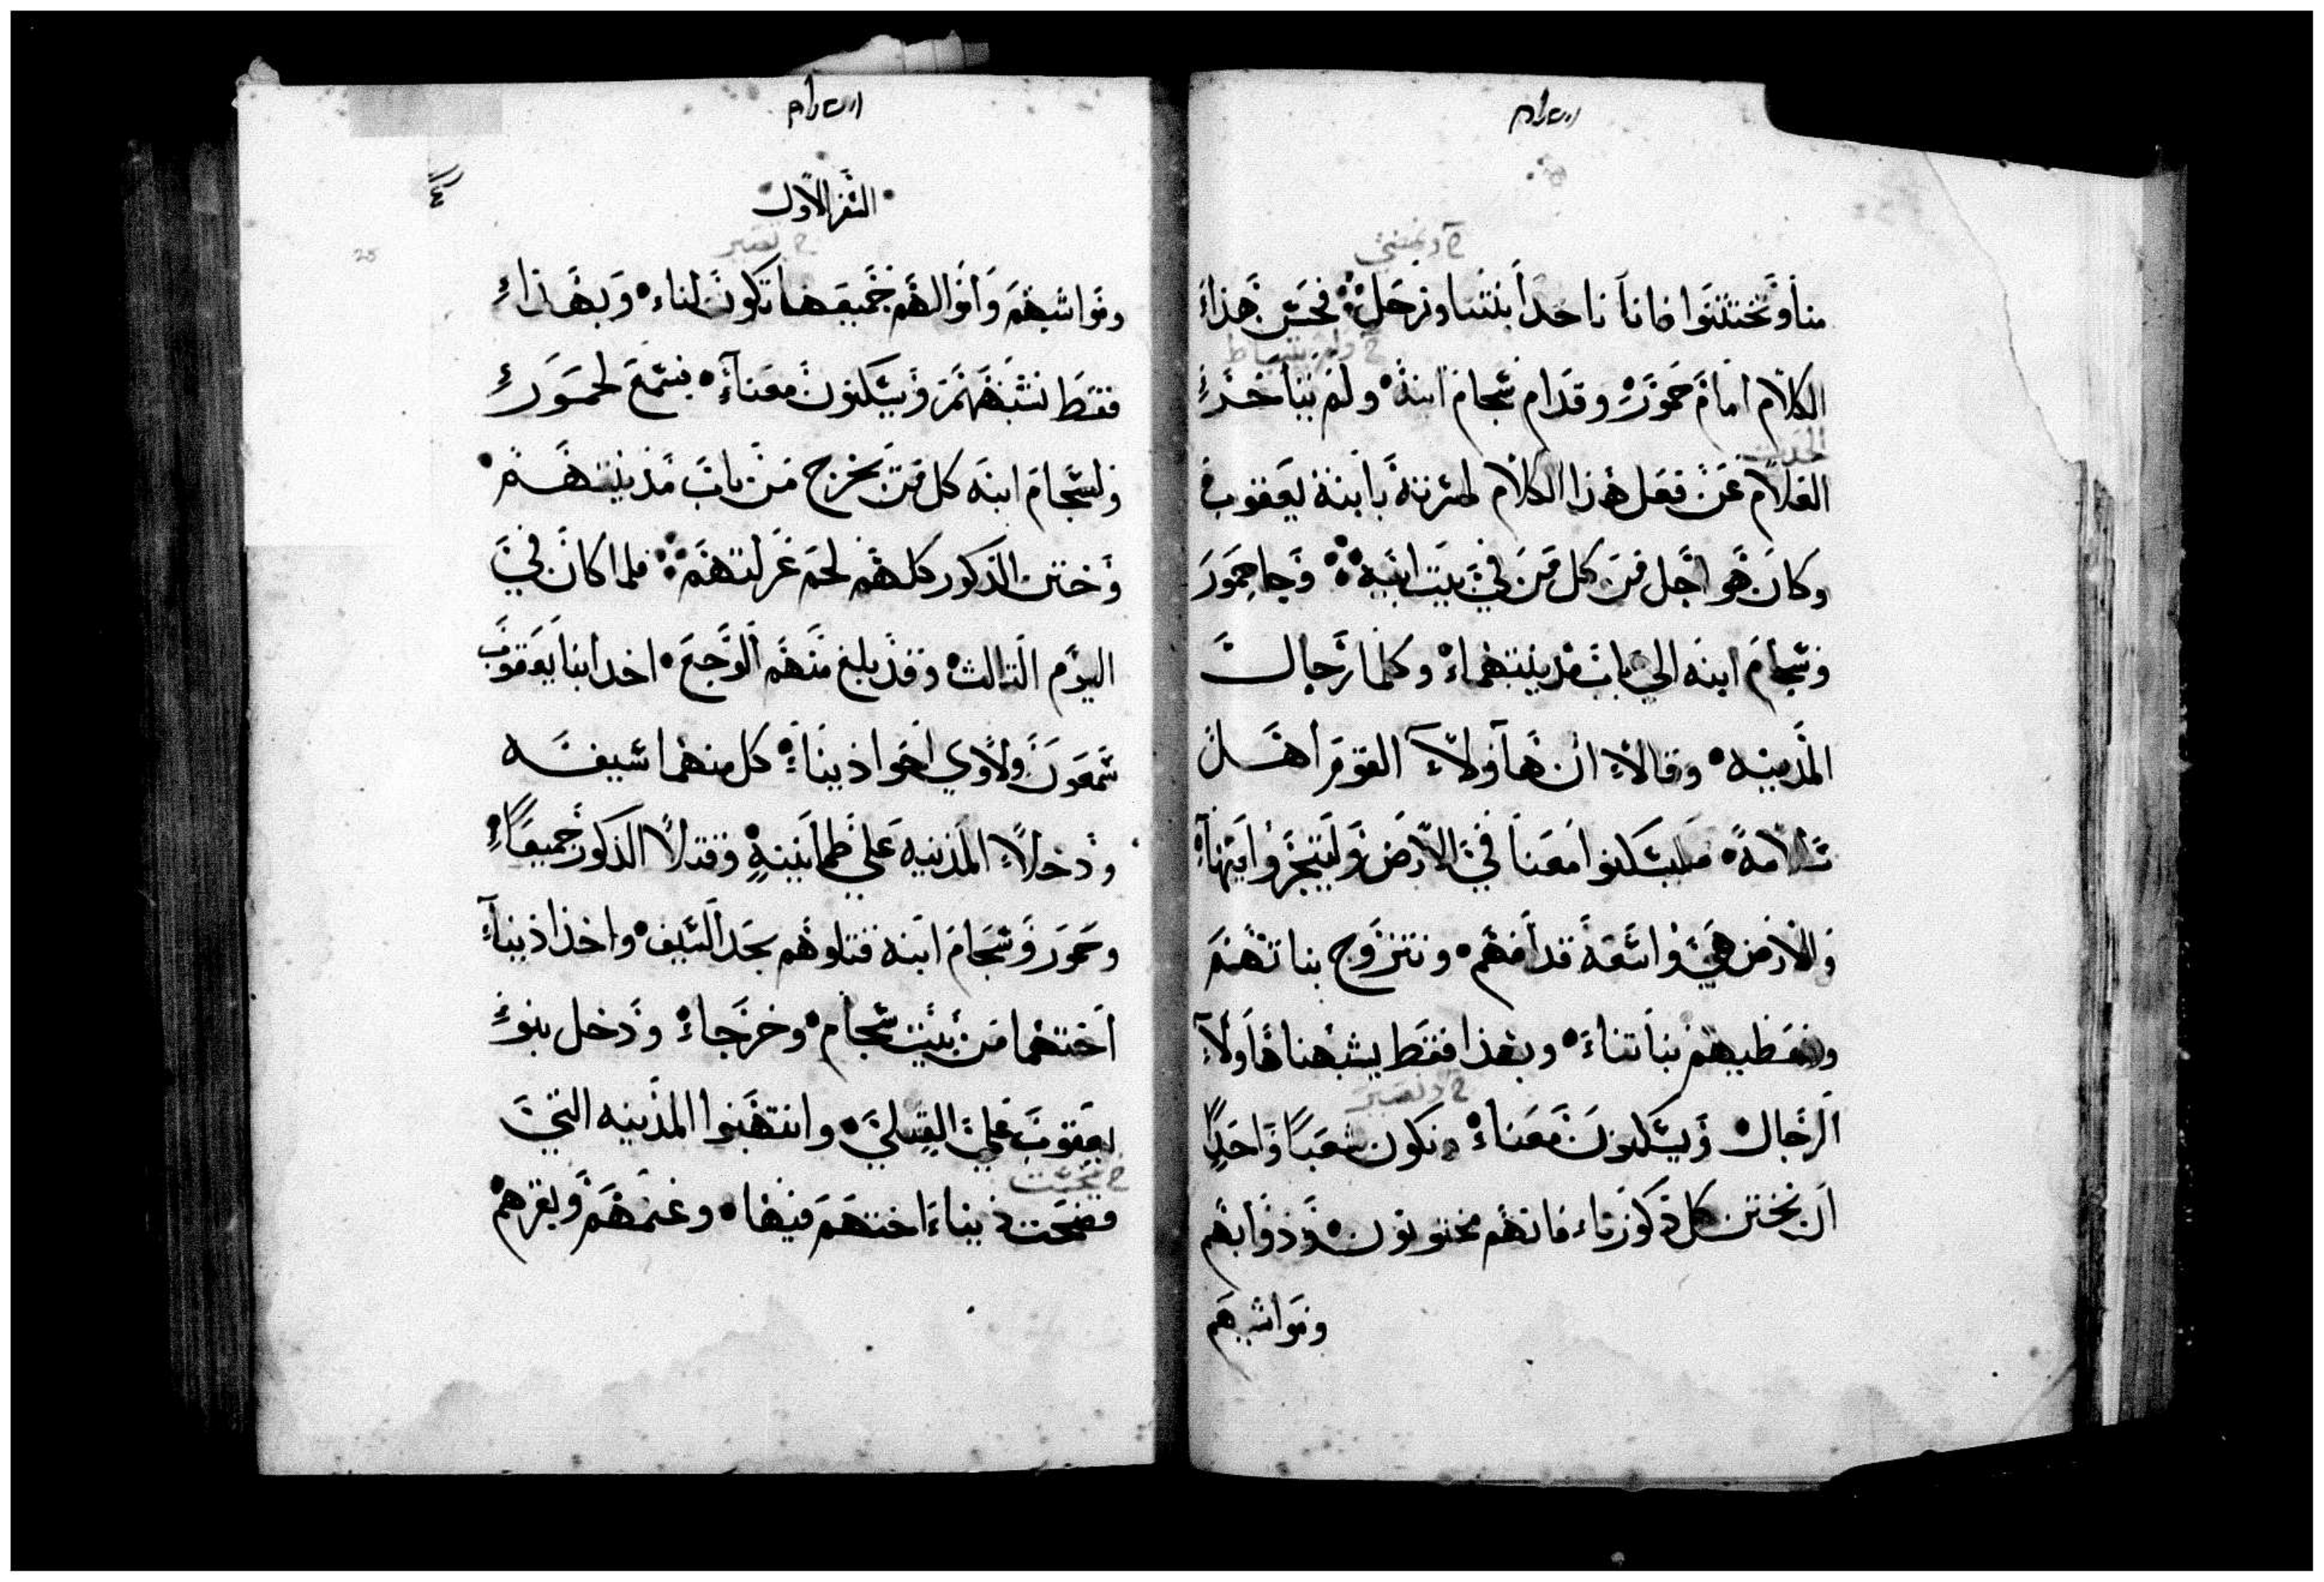 منا وتختتنوا فاننا ناخد ابنتنا ونرحل فحسن هذا
الكلام امام حمور وقدام شجام ابنه ولم يتاخر
الغلام عن فعل هذا الكلام لمسرته بابنة يعقوب
وكان هو اجل من كل من في بيت ابيه وجا حمور
وشجام ابنه الي باب مدينتهما وكلما رجال
المدينه وقالا ان هاولاء القوم اهل
سلامة فليسكنوا معنا في الارض وليتجروا فيها
والارض هي واسعة قدامهم ونتزوج بناتهم
ونعطيهم بناتنا وبهذا فقط يشبهنا هاولاء
الرجال ويسكنون معنا ونكون شعبا واحدا
ان نختن كل ذكورنا فانهم مختونون ودوابهم
ومواشيهم
السفر الاول
ومواشيهم واموالهم جميعها تكون لنا وبهذا
فقط نشبههم ويسكنون معنا فسمع لحمور
ولشجام ابنه كل من يخرج من باب مدينتهم
وختن الذكور كلهم لحم غرلتهم فلما كان في
اليوم التالت وقد بلغ منهم الوجع اخد ابنا يعقوب
شمعون ولاوي اخوا دينا كل منهما سيفه
ودخلا المدينه علي طمانينة وقتلا الذكور جميعا
وحمور وشجام ابنه قتلوهم بحد السيف واخذا دينا
اختهما من بيت شجام وخرجا ودخل بنو
يعقوب علي القتلي وانتهبوا المدينه التي
فضحت دينا اختهم فيها وغنمهم وبقرهم